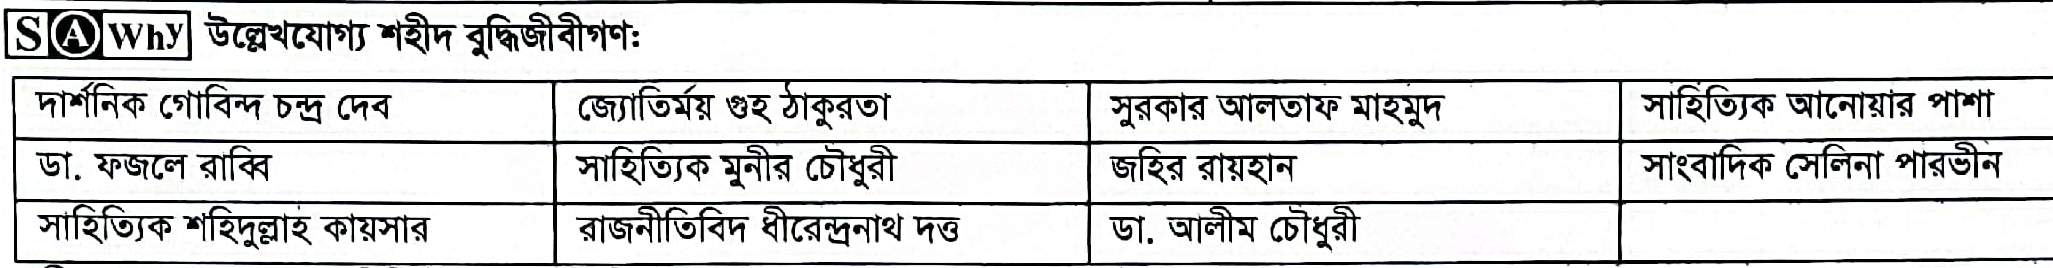 SAWhy উল্লেখযোগ্য শহীদ বুদ্ধিজীবীগণঃ
দার্শনিক গোবিন্দ চন্দ্র দেব জ্যোতির্ময় গুহ ঠাকুরতা সুরকার আলতাফ মাহমুদ সাহিত্যিক আনোয়ার পাশা
ডা. ফজলে রাব্বি সাহিত্যিক মুনীর চৌধুরী জহির রায়হান সাংবাদিক সেলিনা পারভীন
সাহিত্যিক শহিদুল্লাহ কায়সার রাজনীতিবিদ ধীরেন্দ্রনাথ দত্ত ডা. আলীম চৌধুরী